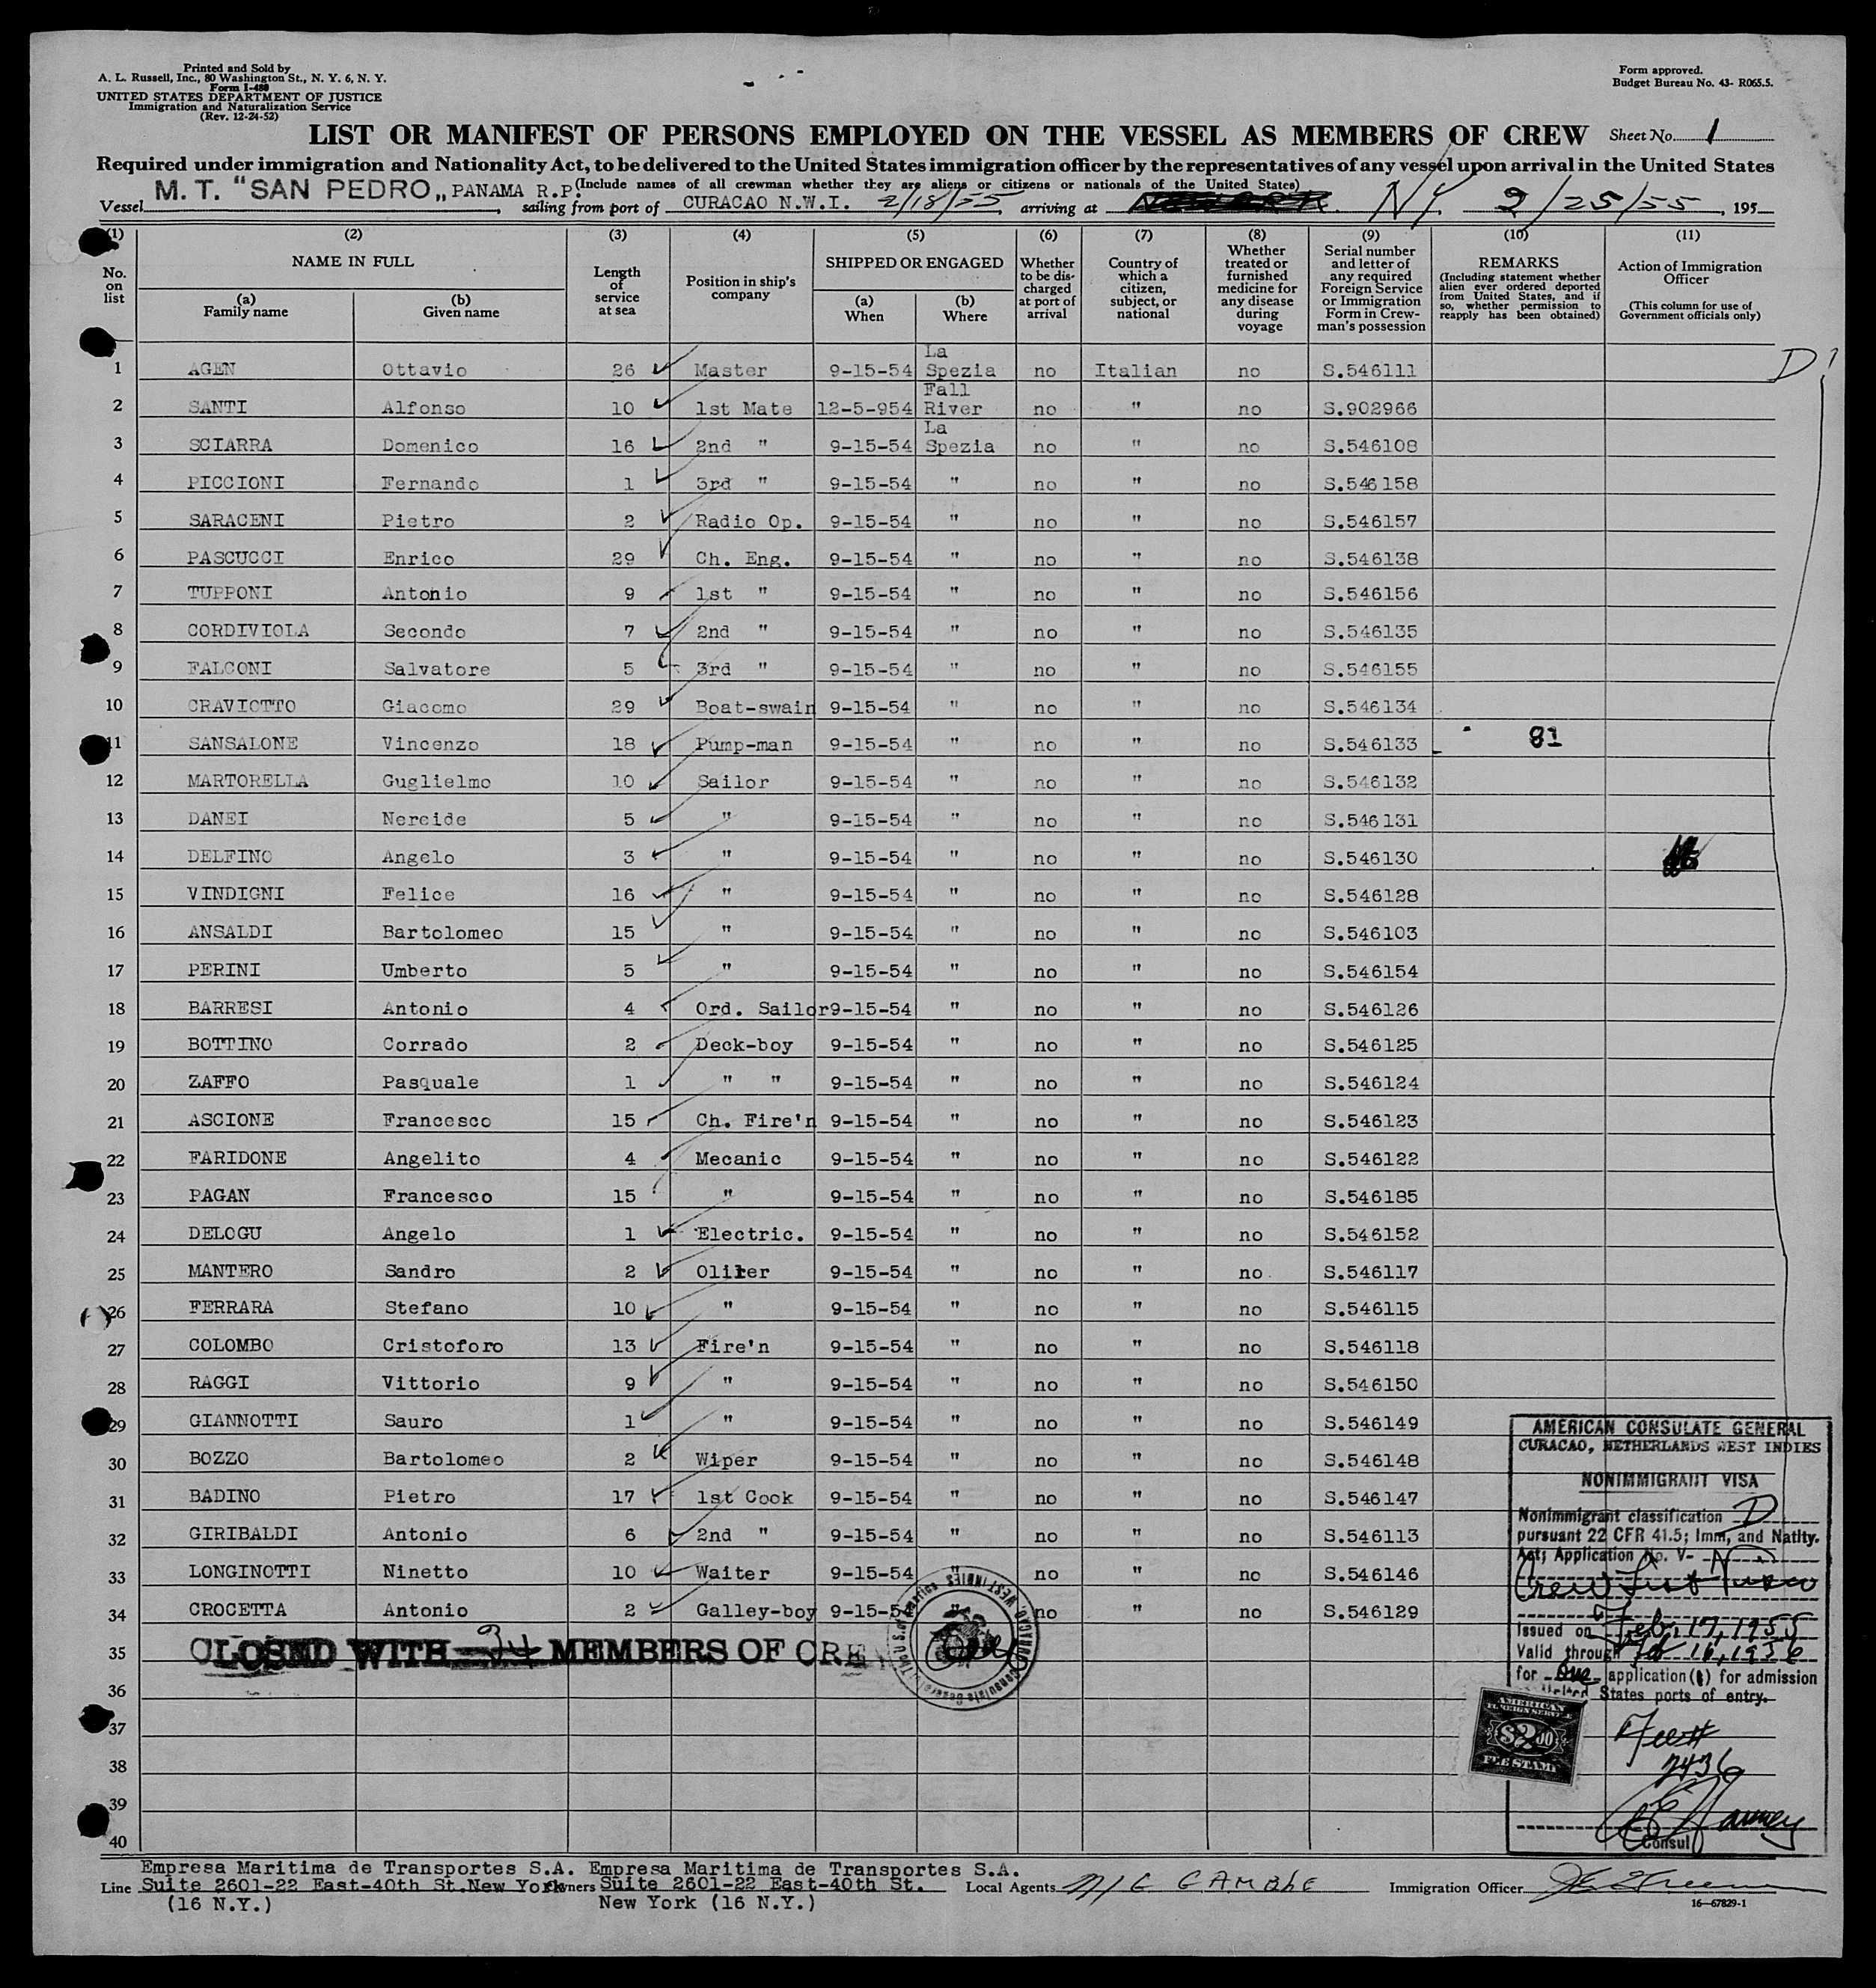 Printed and Sold by
A. L. Russell, Inc., 80 Washington St., N. Y. 6, N. Y.
Form I-480
UNITED STATES DEPARTMENT OF JUSTICE
Immigration and Naturalization Service
(Rev. 12-24-52)
Form approved.
Budget Bureau No. 43- R065.5.
LIST OR MANIFEST OF PERSONS EMPLOYED ON THE VESSEL AS MEMBERS OF CREW Sheet No. 1
Required under immigration and Nationality Act, to be delivered to the United States immigration officer by the representatives of any vessel upon arrival in the United States
(Include names of all crewman whether they are aliens or citizens or nationals of the United States)
Vessel M. T. "SAN PEDRO„ PANAMA R.P. sailing from port of CURACAO N.W.I. 2/18/55, arriving at NY 2/25/55, 195
(1) (2) (3) (4) (5) (6) (7) (8) (9) (10) (11)
No. on list
NAME IN FULL
(a) Family name
(b) Given name
Length of service at sea
Position in ship's company
SHIPPED OR ENGAGED
(a) When
(b) Where
Whether to be discharged at port of arrival
Country of which a citizen, subject, or national
Whether treated or furnished medicine for any disease during voyage
Serial number and letter of any required Foreign Service or Immigration Form in Crewman's possession
REMARKS
(Including statement whether alien ever ordered deported from United States, and if so, whether permission to reapply has been obtained)
Action of Immigration Officer
(This column for use of Government officials only)
1 AGEN Ottavio 26 Master 9-15-54 La Spezia no Italian no S.546111 D
2 SANTI Alfonso 10 1st Mate 12-5-954 Fall River no " no S.902966
3 SCIARRA Domenico 16 2nd " 9-15-54 La Spezia no " no S.546108
4 PICCIONI Fernando 1 3rd " 9-15-54 " no " no S.546158
5 SARACENI Pietro 2 Radio Op. 9-15-54 " no " no S.546157
6 PASCUCCI Enrico 29 Ch. Eng. 9-15-54 " no " no S.546138
7 TUPPONI Antonio 9 1st " 9-15-54 " no " no S.546156
8 CORDIVIOLA Secondo 7 2nd " 9-15-54 " no " no S.546135
9 FALCONI Salvatore 5 3rd " 9-15-54 " no " no S.546155
10 CRAVIOTTO Giacomo 29 Boat-swain 9-15-54 " no " no S.546134
11 SANSALONE Vincenzo 18 Pump-man 9-15-54 " no " no S.546133 81
12 MARTORELLA Guglielmo 10 Sailor 9-15-54 " no " no S.546132
13 DANEI Nercide 5 " 9-15-54 " no " no S.546131
14 DELFINO Angelo 3 " 9-15-54 " no " no S.546130
15 VINDIGNI Felice 16 " 9-15-54 " no " no S.546128
16 ANSALDI Bartolomeo 15 " 9-15-54 " no " no S.546103
17 PERINI Umberto 5 " 9-15-54 " no " no S.546154
18 BARRESI Antonio 4 Ord. Sailor 9-15-54 " no " no S.546126
19 BOTTINO Corrado 2 Deck-boy 9-15-54 " no " no S.546125
20 ZAFFO Pasquale 1 " " 9-15-54 " no " no S.546124
21 ASCIONE Francesco 15 Ch. Fire'n 9-15-54 " no " no S.546123
22 FARIDONE Angelito 4 Mecanic 9-15-54 " no " no S.546122
23 PAGAN Francesco 15 " 9-15-54 " no " no S.546185
24 DELOGU Angelo 1 Electric. 9-15-54 " no " no S.546152
25 MANTERO Sandro 2 9-15-54 " no " no S.546117
26 FERRARA Stefano 10 " 9-15-54 " no " no S.546115
27 COLOMBO Cristoforo 13 Fire'n 9-15-54 " no " no S.546118
28 RAGGI Vittorio 9 " 9-15-54 " no " no S.546150
29 GIANNOTTI Sauro 1 " 9-15-54 " no " no S.546149
30 BOZZO Bartolomeo 2 Wiper 9-15-54 " no " no S.546148
31 BADINO Pietro 17 1st Cook 9-15-54 " no " no S.546147
32 GIRIBALDI Antonio 6 2nd " 9-15-54 " no " no S.546113
33 LONGINOTTI Ninetto 10 Waiter 9-15-54 " no " no S.546146
34 CROCETTA Antonio 2 Galley-boy 9-15-54 " no " no S.546129
35 CLOSED WITH 34 MEMBERS OF CRE
36
37
38
39
40
AMERICAN CONSULATE GENERAL
CURACAO, NETHERLANDS WEST INDIES
NONIMMIGRANT VISA
Nonimmigrant classification D
pursuant 22 CFR 41.5; Imm, and Natlty.
Act; Application No. V-
Crew List
Issued on Feb. 17, 1955
Valid through Feb 16, 1956
for One application(s) for admission
United States ports of entry.
AMERICAN
FOREIGN SERVICE
$2.00
FEE STAMP
2436
Consul
Line Empresa Maritima de Transportes S.A.
Suite 2601-22 East-40th St. New York
(16 N.Y.)
Owners Empresa Maritima de Transportes S.A.
Suite 2601-22 East-40th St.
New York (16 N.Y.)
Local Agents GAMBLE
Immigration Officer
16-67829-1